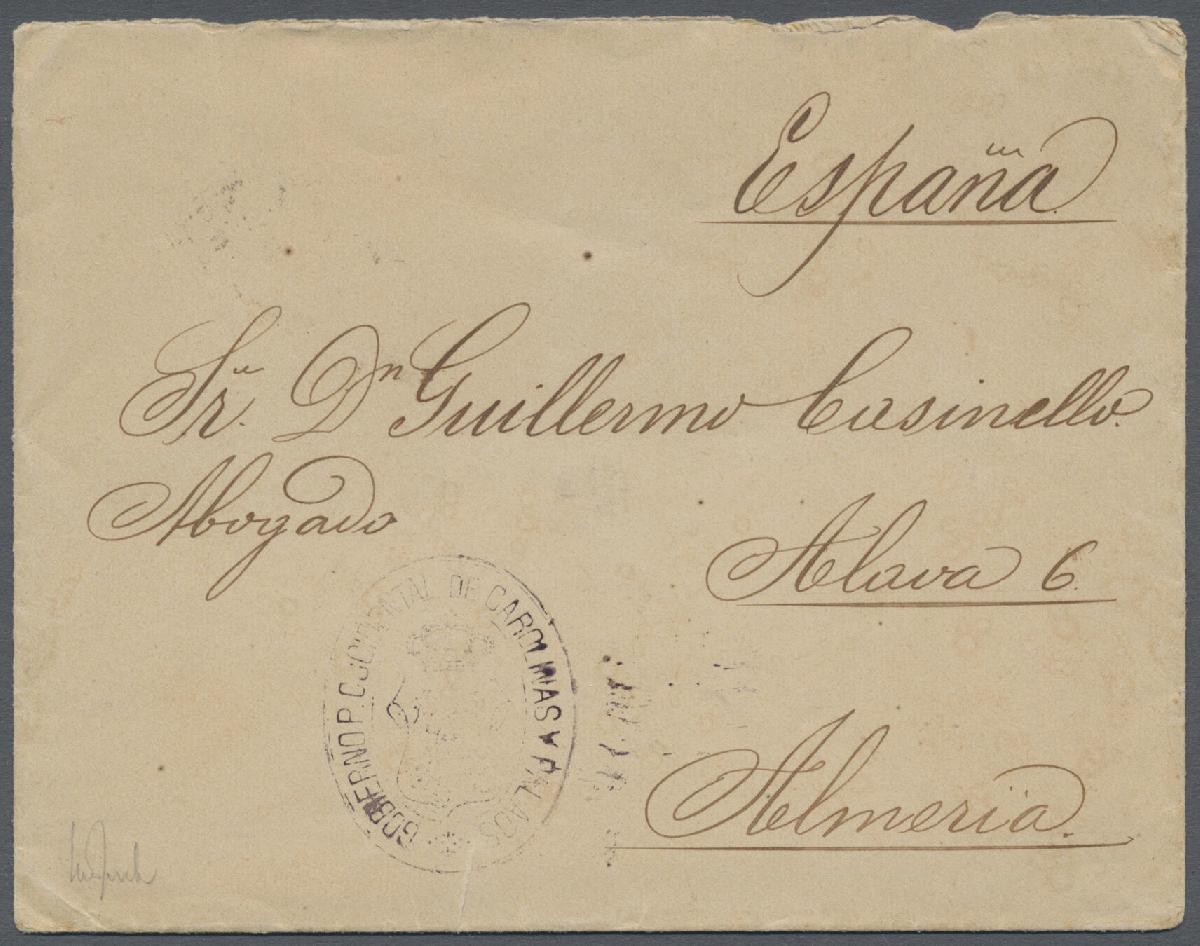 España
Sr. Dn Guillermo Casinello.
Abogado
Alava 6.
GOBIERNO P. OCCIDENTAL DE CAROLINAS Y PALAOS
Almería.